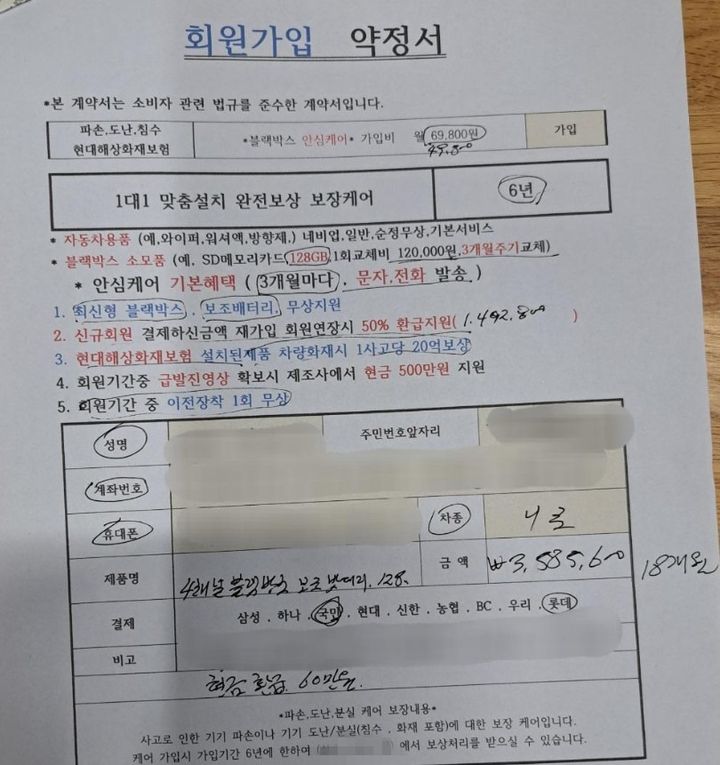 회원가입 약정서
*본 계약서는 소비자 관련 법규를 준수한 계약서입니다.
파손,도난,침수
현대해상화재보험
*블랙박스 안심케어* 가입비 월 69,800원
49,800
가입
1대1 맞춤설치 완전보상 보장케어
6년
* 자동차용품 (예,와이퍼,워셔액,방향제,) 네비업,일반,순정무상,기본서비스
* 블랙박스 소모품 (예. SD메모리카드 128GB,1회교체비 120,000원,3개월주기교체)
* 안심케어 기본혜택 ( 3개월마다 . 문자,전화 발송 )
1. 최신형 블랙박스 . 보조배터리. 무상지원
2. 신규회원 결제하신금액 재가입 회원연장시 50% 환급지원( 1.492.800 )
3. 현대해상화재보험 설치된제품 차량화재시 1사고당 20억보상
4. 회원기간중 급발진영상 확보시 제조사에서 현금 500만원 지원
5. 회원기간 중 이전장착 1회 무상
성명
주민번호앞자리
계좌번호
휴대폰
차종
니로
제품명
4채널 블랙박스 보조밧데리. 128.
금 액
₩3,585,600
18개월
결제
삼성 . 하나 . 국민 . 현대 . 신한 . 농협 . BC . 우리 . 롯데
비고
현금 환급 60만원.
*파손,도난,분실 케어 보장내용*
사고로 인한 기기 파손이나 기기 도난/분실(침수 , 화재 포함)에 대한 보장 케어입니다.
케어 가입시 가입기간 6년에 한하여 ( ) 에서 보상처리를 받으실 수 있습니다.